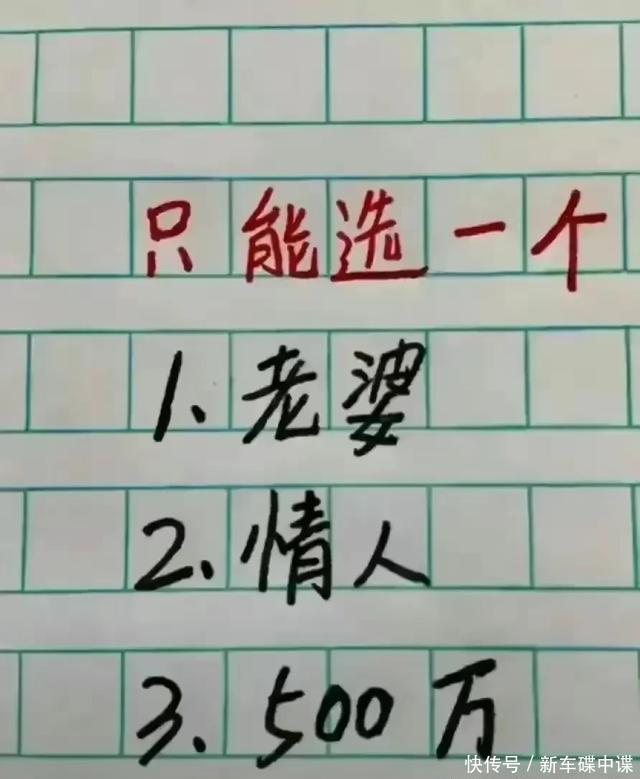 只能选一个
1、老婆
2、情人
3、500万
快传号／新车碟中谍